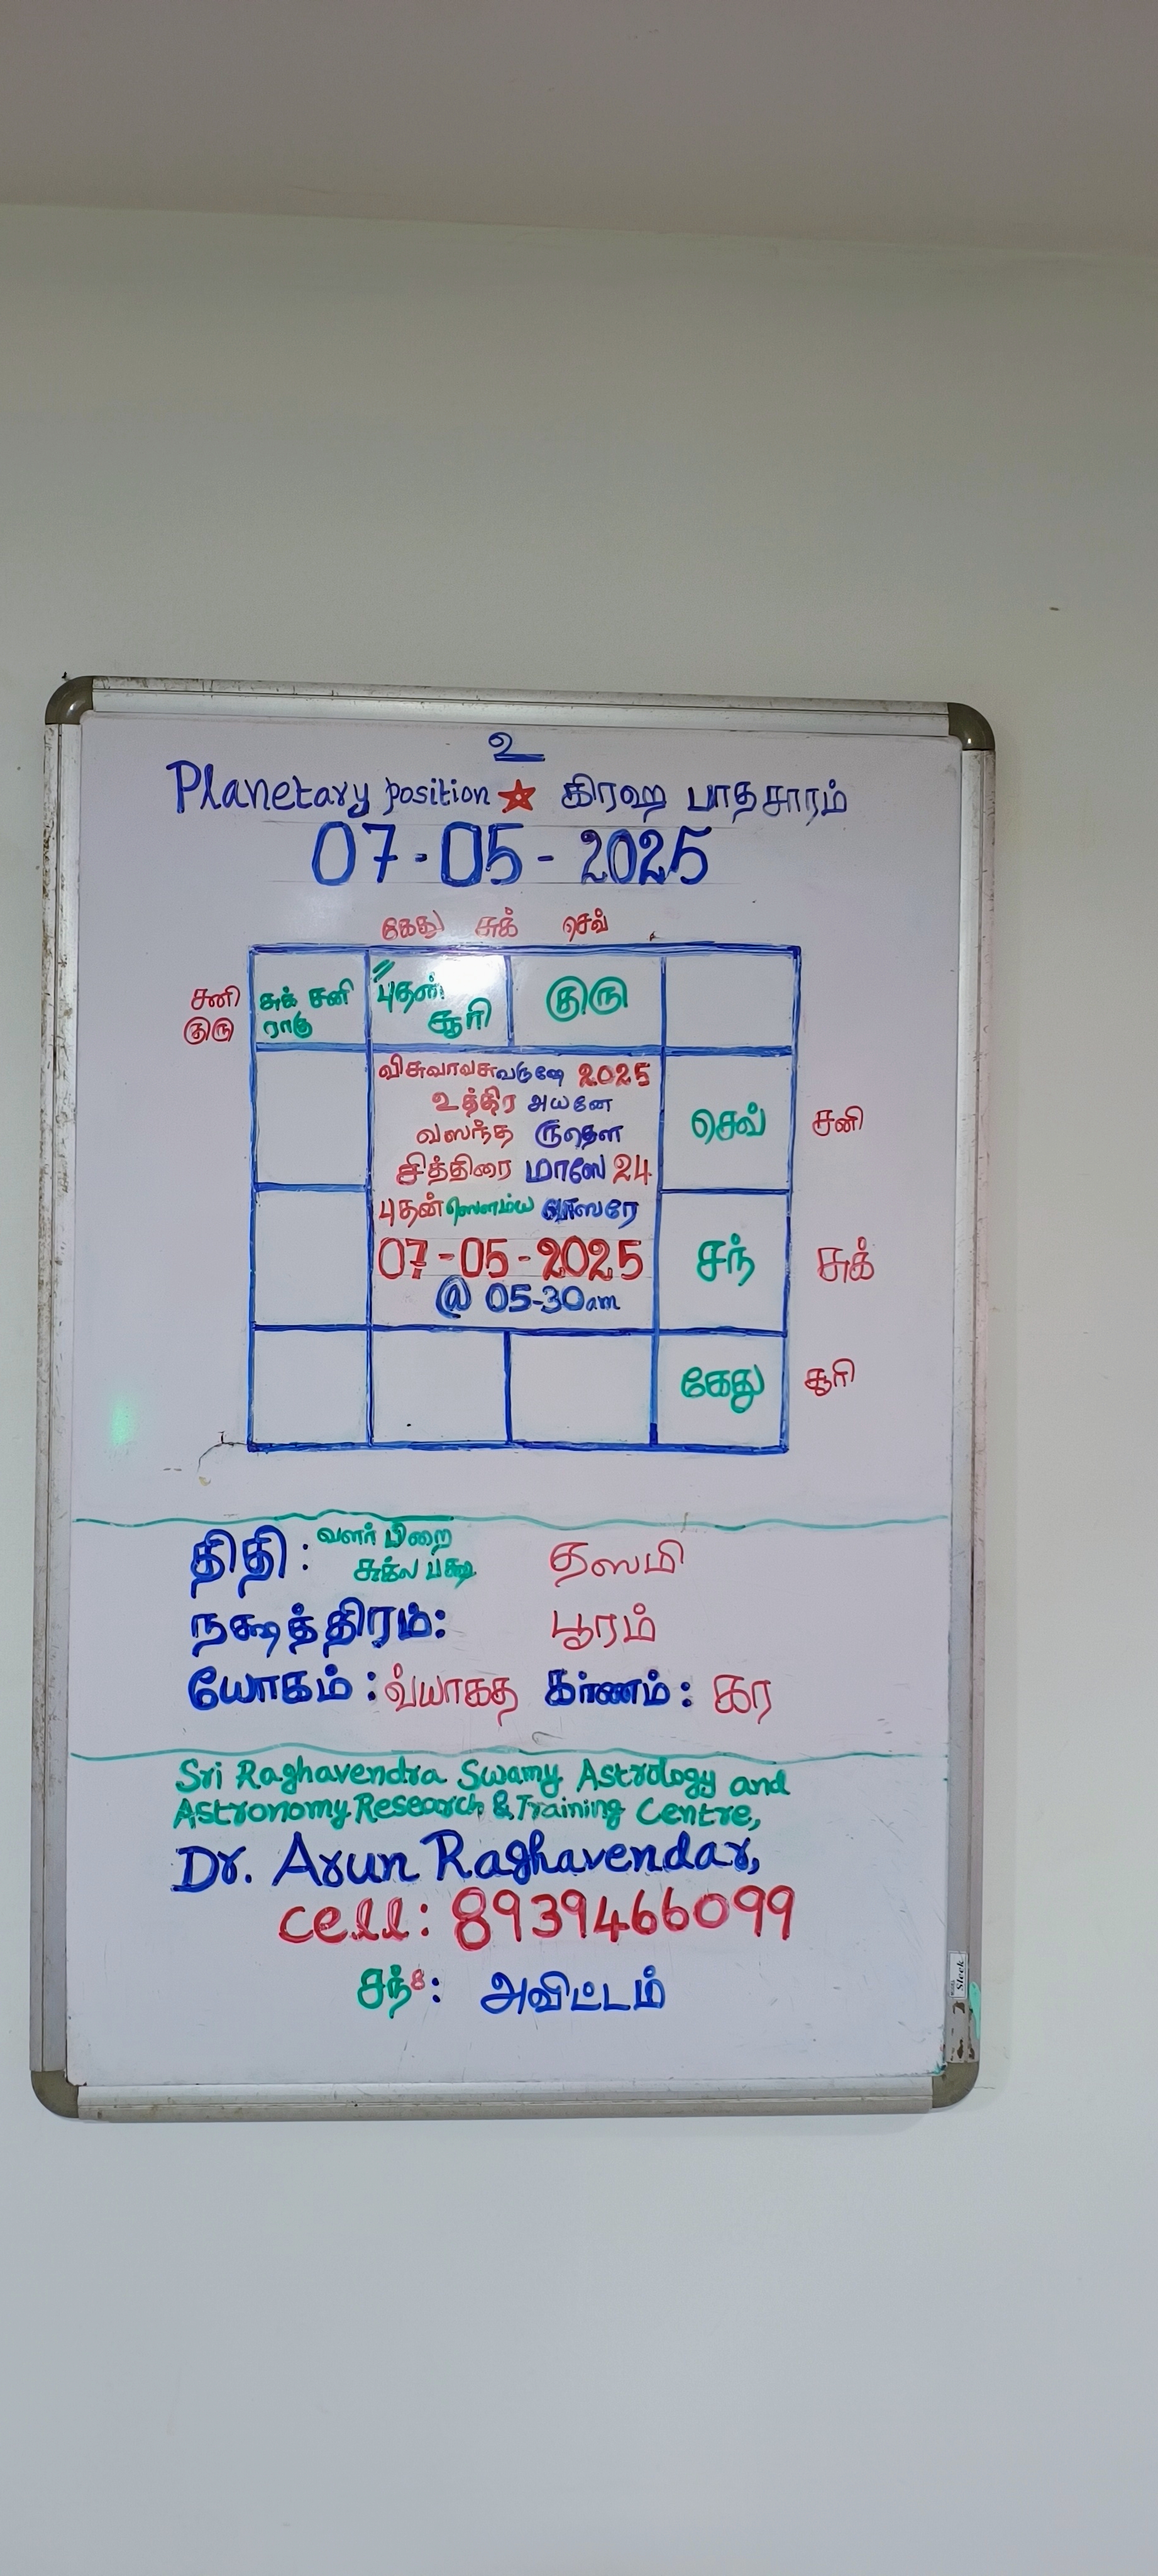 உ
Planetary position ★ கிரஹ பாதசாரம்
07-05-2025
கேது சுக் செவ்
சனி குரு
சுக் சனி ராகு
புதன் சூரி
குரு
விசுவாவசுவருஷே 2025
உத்திர அயனே
வஸந்த ருதௌ
சித்திரை மாஸே 24
புதன் ஸௌம்ய வாஸரே
07-05-2025
@ 05-30am
செவ் சனி
சந் சுக்
கேது சூரி
திதி: வளர் பிறை சுக்ல பக்ஷ தஸமி
நக்ஷத்திரம்: பூரம்
யோகம்: வ்யாகத கர்ணம்: கர
Sri Raghavendra Swamy Astrology and
Astronomy Research & Training Centre,
Dr. Arun Raghavendar,
Cell: 8939466099
சந்8: அவிட்டம்
Sleek